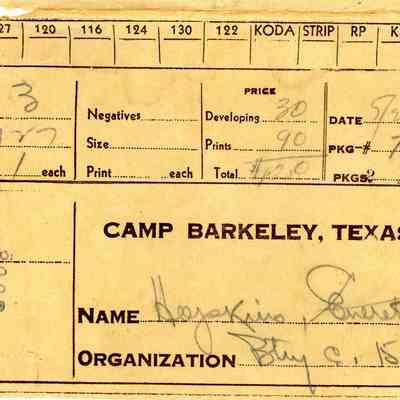 27 120 116 124 130 122 KODA STRIP RP K
PRICE
3 Negatives Developing 30 DATE
127 Size Prints 90 PKG-# 7
1 each Print each Total $1.20 PKGS 2
CAMP BARKELEY, TEXAS
NAME Hopkins, Everet
ORGANIZATION Btry C.